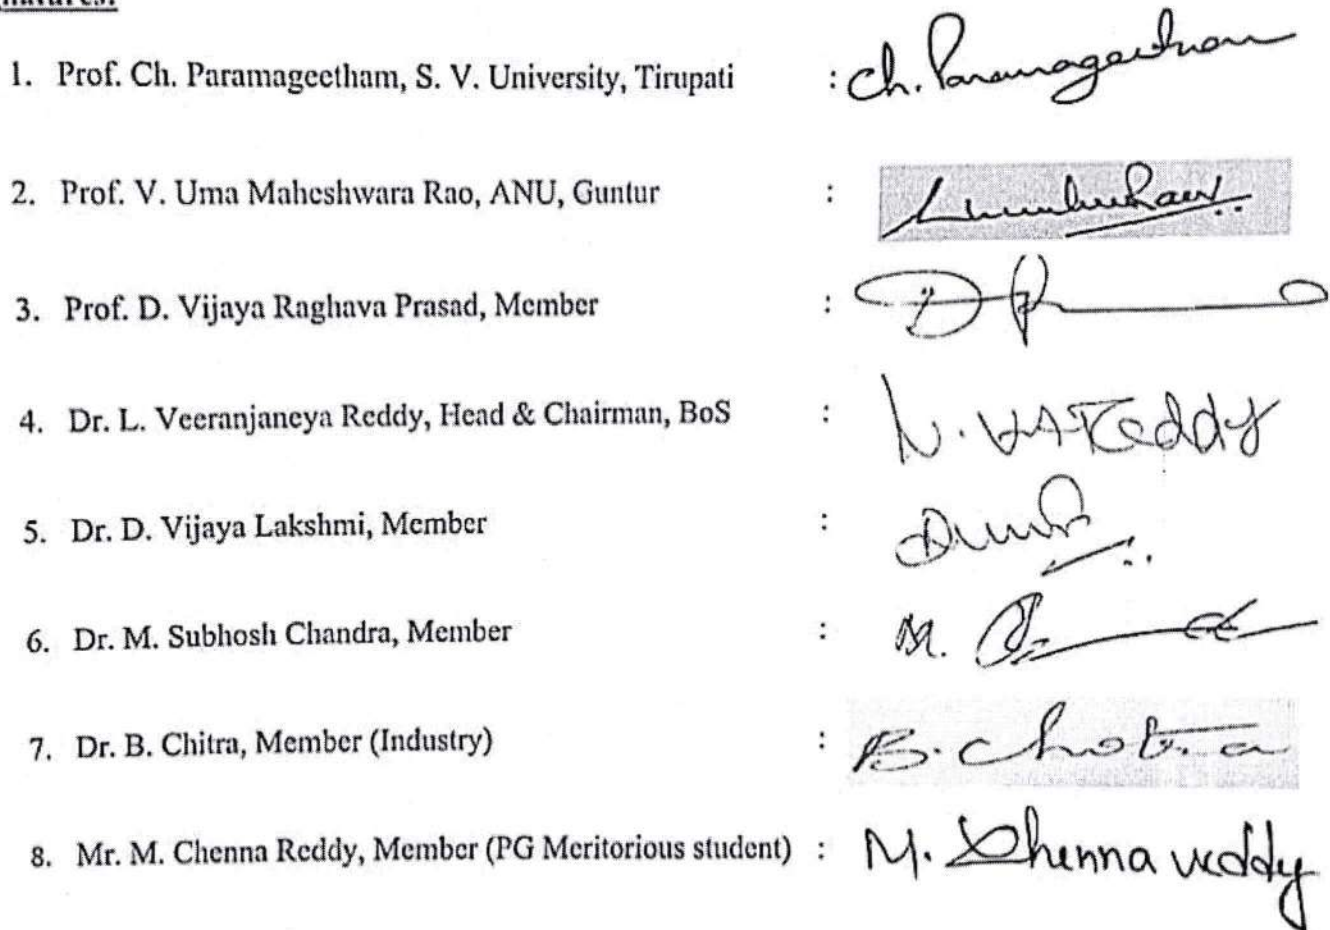 natures:
1. Prof. Ch. Paramageetham, S. V. University, Tirupati : Ch. Paramageetham
2. Prof. V. Uma Maheshwara Rao, ANU, Guntur :
3. Prof. D. Vijaya Raghava Prasad, Member :
4. Dr. L. Veeranjaneya Reddy, Head & Chairman, BoS : Reddy
5. Dr. D. Vijaya Lakshmi, Member :
6. Dr. M. Subhosh Chandra, Member : M.
7. Dr. B. Chitra, Member (Industry) : B. Chitra
8. Mr. M. Chenna Reddy, Member (PG Meritorious student) : M. Chenna reddy